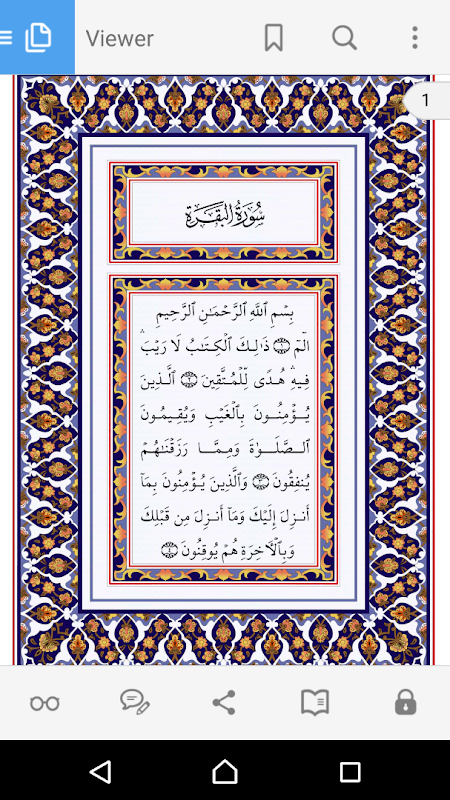 Viewer
1
سُورَةُ الْبَقَرَةِ
بِسْمِ ٱللَّهِ ٱلرَّحْمَـٰنِ ٱلرَّحِيمِ
الٓمٓ ۝١ ذَٰلِكَ ٱلْكِتَـٰبُ لَا رَيْبَ ۛ
فِيهِ ۛ هُدًى لِّلْمُتَّقِينَ ۝٢ ٱلَّذِينَ
يُؤْمِنُونَ بِٱلْغَيْبِ وَيُقِيمُونَ
ٱلصَّلَوٰةَ وَمِمَّا رَزَقْنَـٰهُمْ
يُنفِقُونَ ۝٣ وَٱلَّذِينَ يُؤْمِنُونَ بِمَآ
أُنزِلَ إِلَيْكَ وَمَآ أُنزِلَ مِن قَبْلِكَ
وَبِٱلْـَٔاخِرَةِ هُمْ يُوقِنُونَ ۝٤